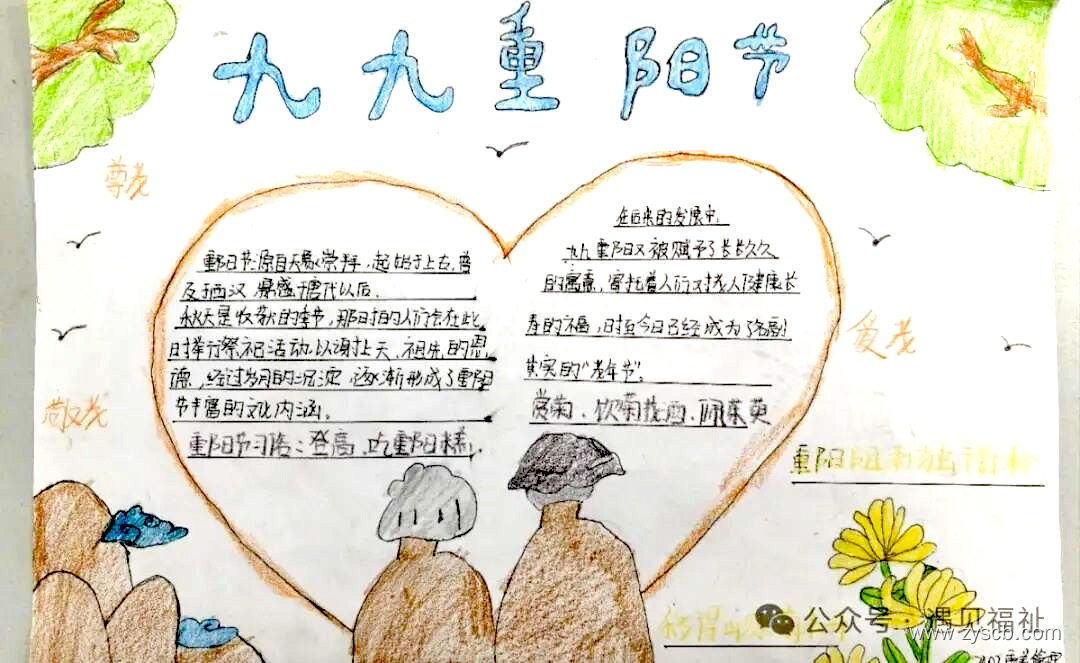 九九重阳节
尊老
重阳节源自天象崇拜，起始于上古，普
及于西汉，鼎盛于唐代以后。
秋天是收获的季节，那时的人们会在此
时举行祭祀活动以谢上天、祖先的恩
德，经过岁月的沉淀，逐渐形成了重阳
节丰富的文化内涵。
重阳节习俗：登高、吃重阳糕、
在后来的发展中，
九九重阳又被赋予了长长久久
的寓意，寄托着人们对老人健康长
寿的祝福，时至今日已经成为了名副
其实的“老年节”。
赏菊、饮菊花酒、佩茱萸
爱老
敬老
重阳
公众号·遇见福祉
www.zyscb.com